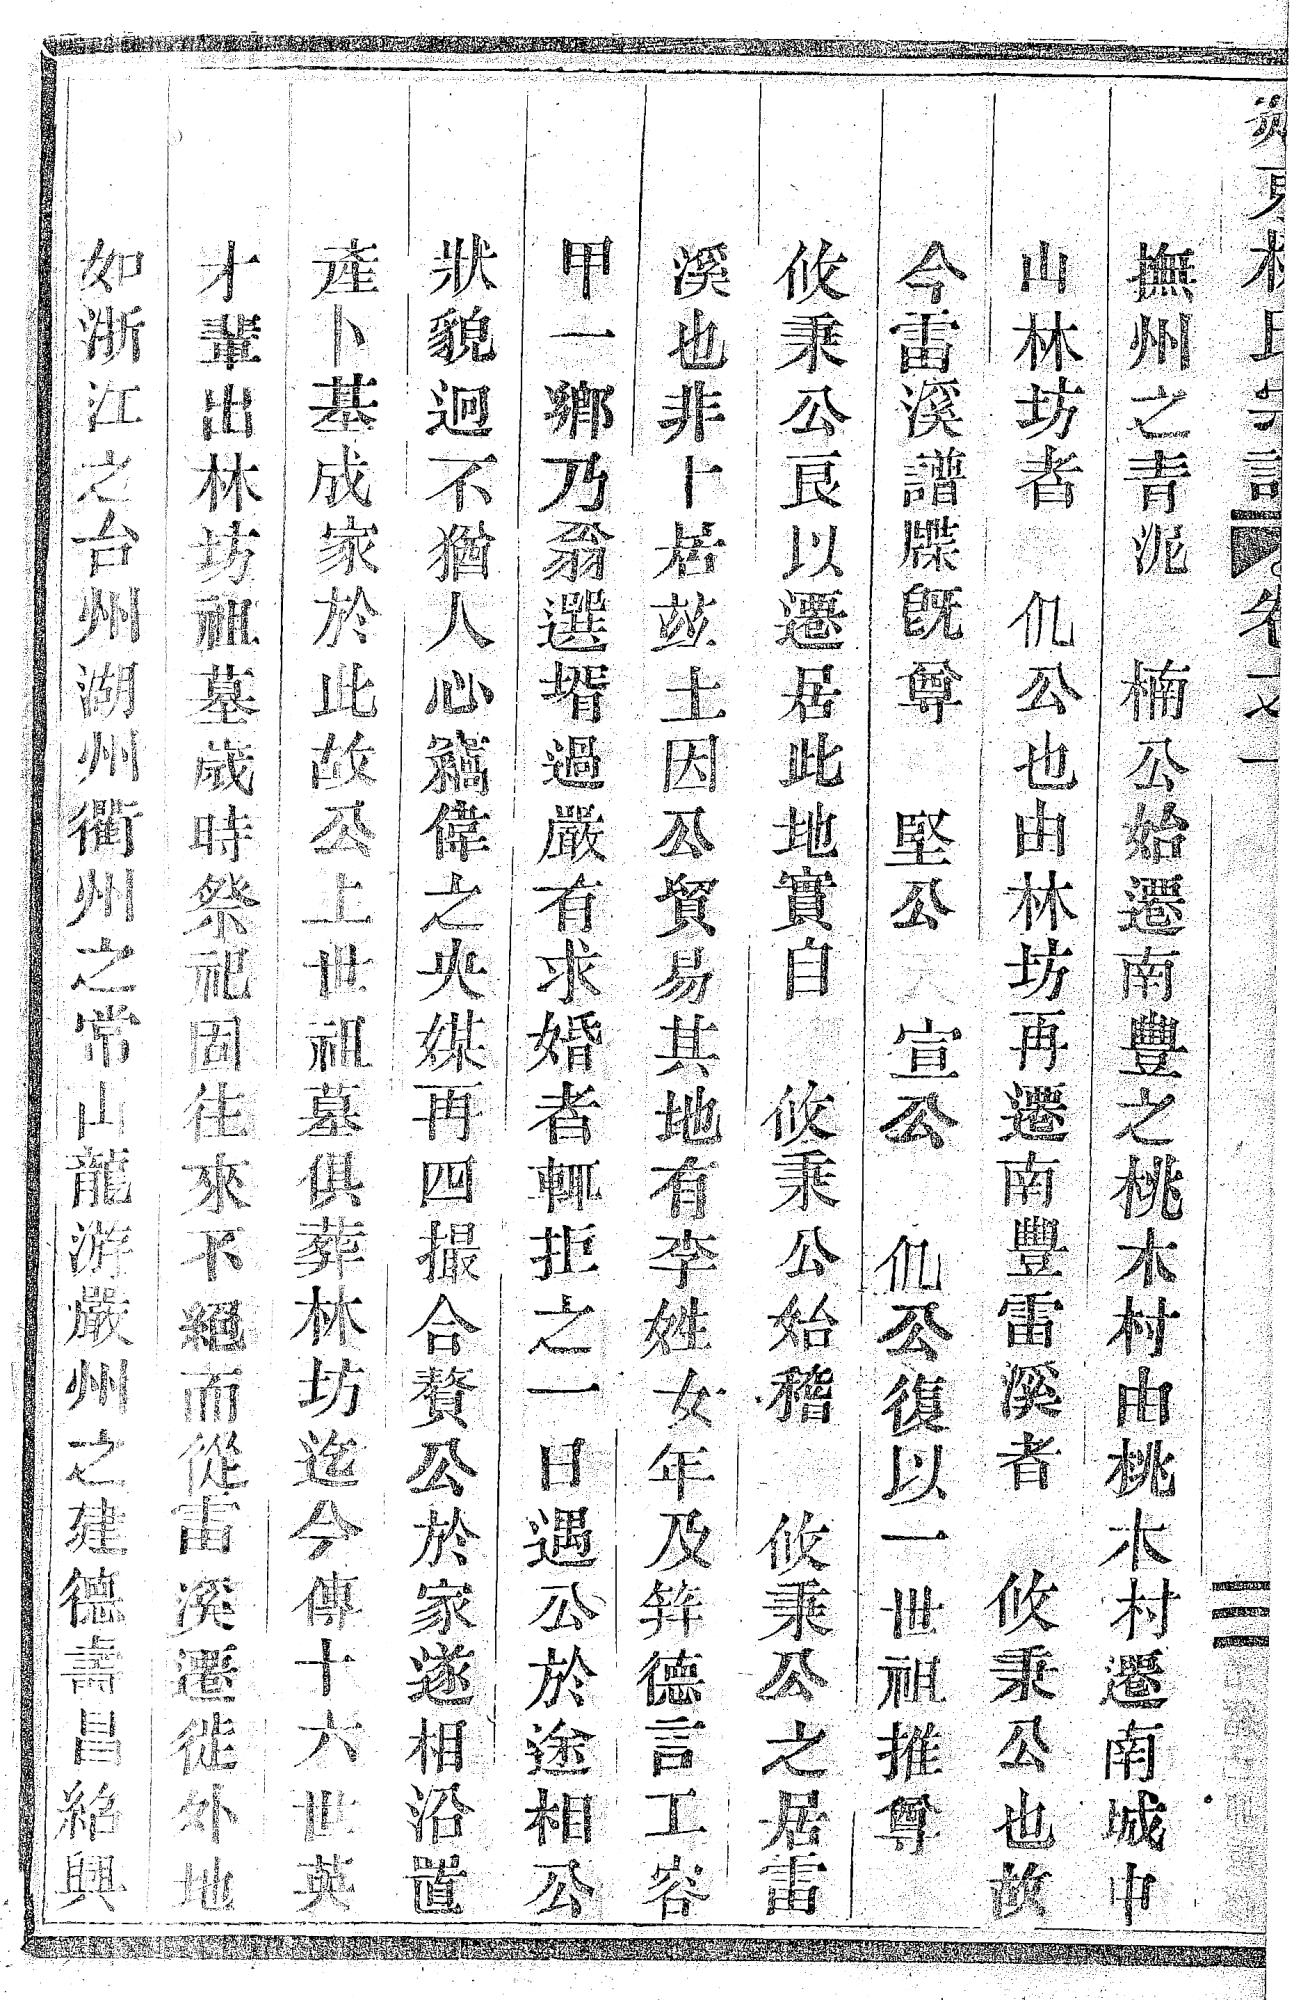 氏宗譜 卷之一
撫州之青泥 楠公始遷南豐之桃木村由桃木村遷南城中
山林坊者 仉公也由林坊再遷南豐雷溪者 攸秉公也故
今雷溪譜牒旣尊 堅公 宣公 仉公復以一世祖推尊
攸秉公良以遷居此地實自 攸秉公始稽 攸秉公之居雷
溪也非卜居玆土因公貿易其地有李姓女年及笄德言工容
甲一鄉乃翁選壻過嚴有求婚者輒拒之一日遇公於途相公
狀貌迥不猶人心竊偉之央媒再四撮合贅公於家遂相沿置
產卜基成家於此故公上世祖墓俱葬林坊迄今傳十六世英
才輩出林坊祖墓歲時祭祀固往來不絕而從雷溪遷徙外地
如浙江之台州湖州衢州之常山龍游嚴州之建德壽昌紹興